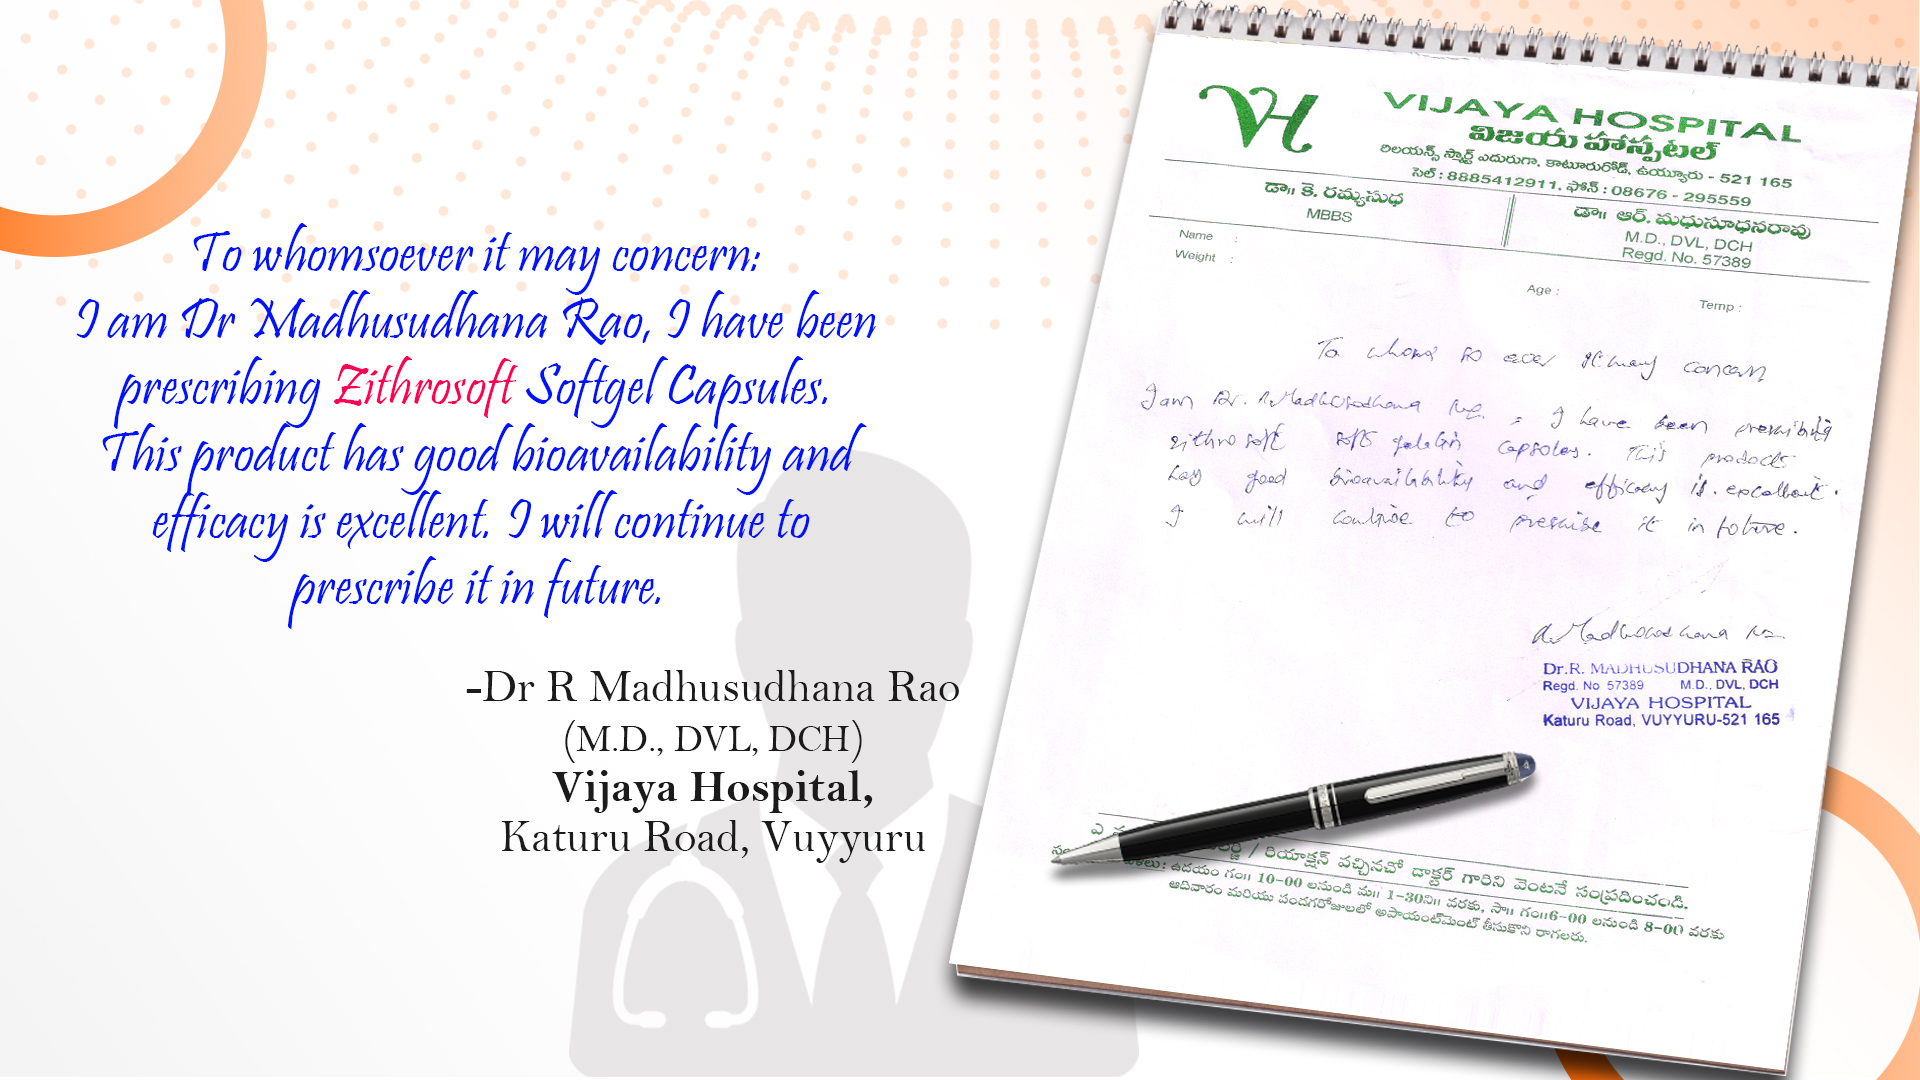 To whomsoever it may concern:
I am Dr Madhusudhana Rao, I have been
prescribing Zithrosoft Softgel Capsules.
This product has good bioavailability and
efficacy is excellent. I will continue to
prescribe it in future.
-Dr R Madhusudhana Rao
(M.D., DVL, DCH)
Vijaya Hospital,
Katuru Road, Vuyyuru
VH
VIJAYA HOSPITAL
విజయ హాస్పటల్
రిలయన్స్ స్మార్ట్ ఎదురుగా, కాటూరురోడ్, ఉయ్యూరు - 521 165
సెల్ : 8885412911, ఫోన్ : 08676 - 295559
డా౹౹ కె. రమ్యసుధ
MBBS
డా౹౹ ఆర్. మధుసూధనరావు
M.D., DVL, DCH
Regd. No. 57389
Name :
Weight :
Age :
Temp :
To whom so ever it may concern
I am Dr. R Madhusudhana Rao. I have been prescribing
zithrosoft soft gelatin capsules. This products
has good bioavailability and efficacy is excellent.
I will continue to prescribe it in future.
R. Madhusudhana Rao
Dr.R. MADHUSUDHANA RAO
Regd. No 57389 M.D., DVL, DCH
VIJAYA HOSPITAL
Katuru Road, VUYYURU-521 165
/ రియాక్షన్ వచ్చినచో డాక్టర్ గారిని వెంటనే సంప్రదించండి.
ఉదయం గం౹౹ 10-00 లనుండి మ౹౹ 1-30ని౹౹ వరకు, సా౹౹ గం౹౹6-00 లనుండి 8-00 వరకు
ఆదివారం మరియు పండగరోజులలో అపాయింట్‌మెంట్ తీసుకొని రాగలరు.